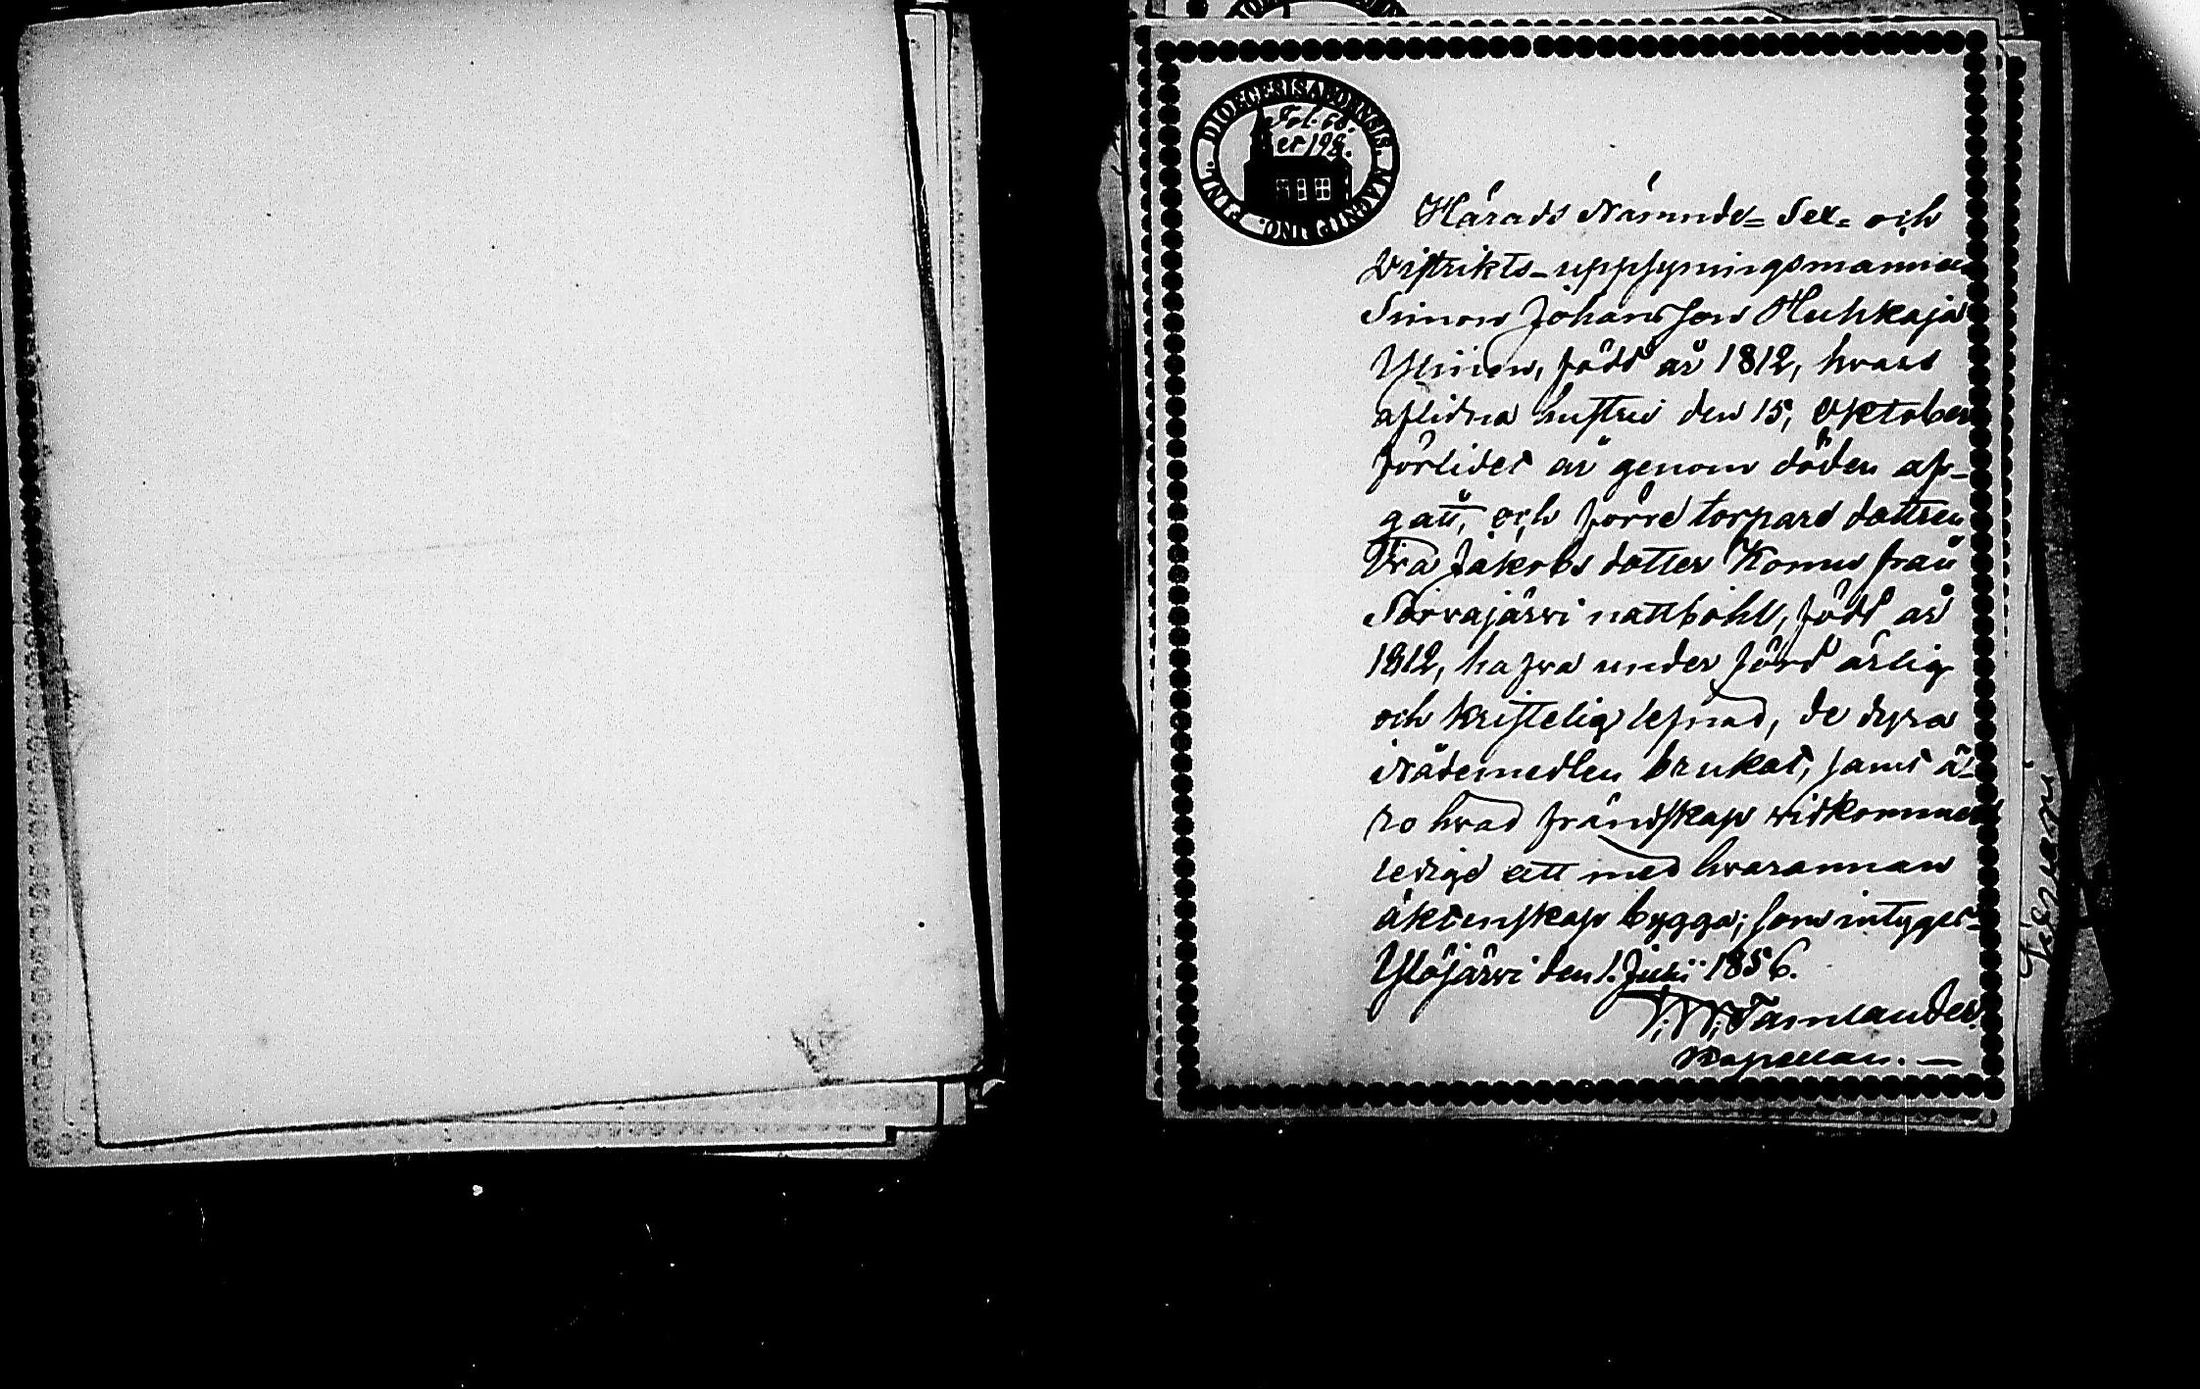 DIOECESIS ABOENSIS. MAGNI PRINC. FINL.
Fol. 68.
et 198.
Härads Nämnde- Sex- och
Distrikts-uppsyningsmannen
Simon Johansson Huhkaja
Ylinen, född år 1812, hvars
aflidna hustru den 15, Oktober
förlidet år genom döden af-
gått, och förre torpare dottren
Eva Jakobs dotter Komu från
Sorvajärvi nattbohl, född år
1812, hafva under förd ärlig
och kristelig lefnad, de dyra
Nådemedlen brukat, samt ä-
ro hvad frändskap vidkommer
ledige att med hvarannan
äktenskap bygga; som intygas
Ylöjärvi den 1. Juni 1856.
Tamlander.
Kapellan. —